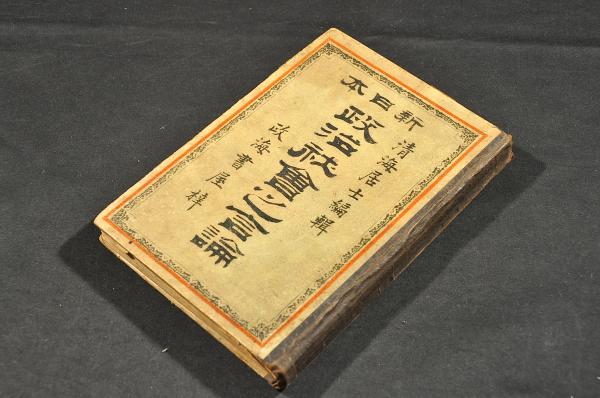 新日本
清海居士編輯
政治社會之言論
政海書屋梓